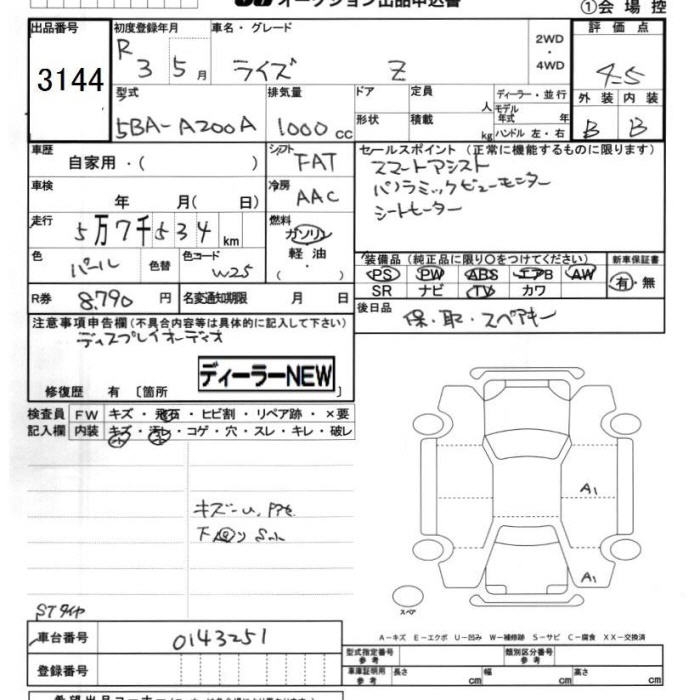 オークション出品申込書
①会場控
出品番号
3144
初度登録年月
R 3 5月
車名・グレード
ライズ Z
2WD・4WD
評価点
4.5
外装 内装
B B
型式
5BA-A200A
排気量
1000cc
ドア
形状
定員 人
積載 kg
ディーラー・並行
モデル年式 年
ハンドル 左・右
車歴 自家用・( )
シフト FAT
車検 年 月( 日)
冷房 AAC
走行 5万7千534km
燃料 ガソリン
軽油
・
( )
色 パール 色替 色コード W25
R券 8,790円 名変通知期限 月 日
セールスポイント(正常に機能するものに限ります)
スマートアシスト
パノラミックビューモニター
シートヒーター
装備品(純正品に限り○をつけてください)
PS PW ABS エアB AW
SR ナビ TV カワ
新車保証書
有・無
後日品 保・取・スペアキー
注意事項申告欄(不具合内容等は具体的に記入して下さい)
ディスプレイオーディオ
ディーラーNEW
修復歴 有 〔箇所 〕
検査員記入欄
FW キズ・飛石・ヒビ割・リペア跡・×要
内装 キズ・汚レ・コゲ・穴・スレ・キレ・破レ
A1
A1
スペア
STタイヤ
A−キズ E−エクボ U−凹み W−補修跡 S−サビ C−腐食 XX−交換済
車台番号 0143251
登録番号
型式指定番号 参考
類別区分番号 参考
車庫証明用 参考
長さ cm 幅 cm 高さ cm